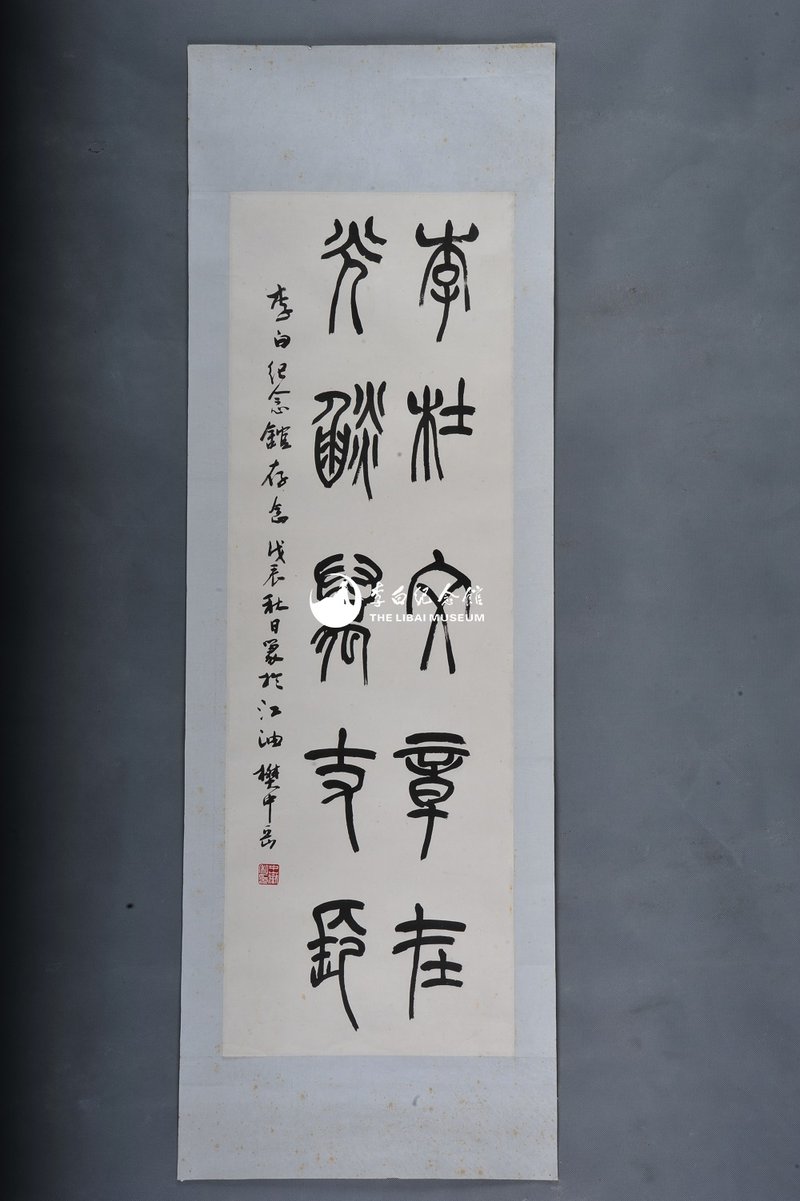 李杜文章在
光燄萬丈長
李白纪念館存念 戊辰秋日篆於江油 樊中岳
李白纪念館
THE LIBAI MUSEUM